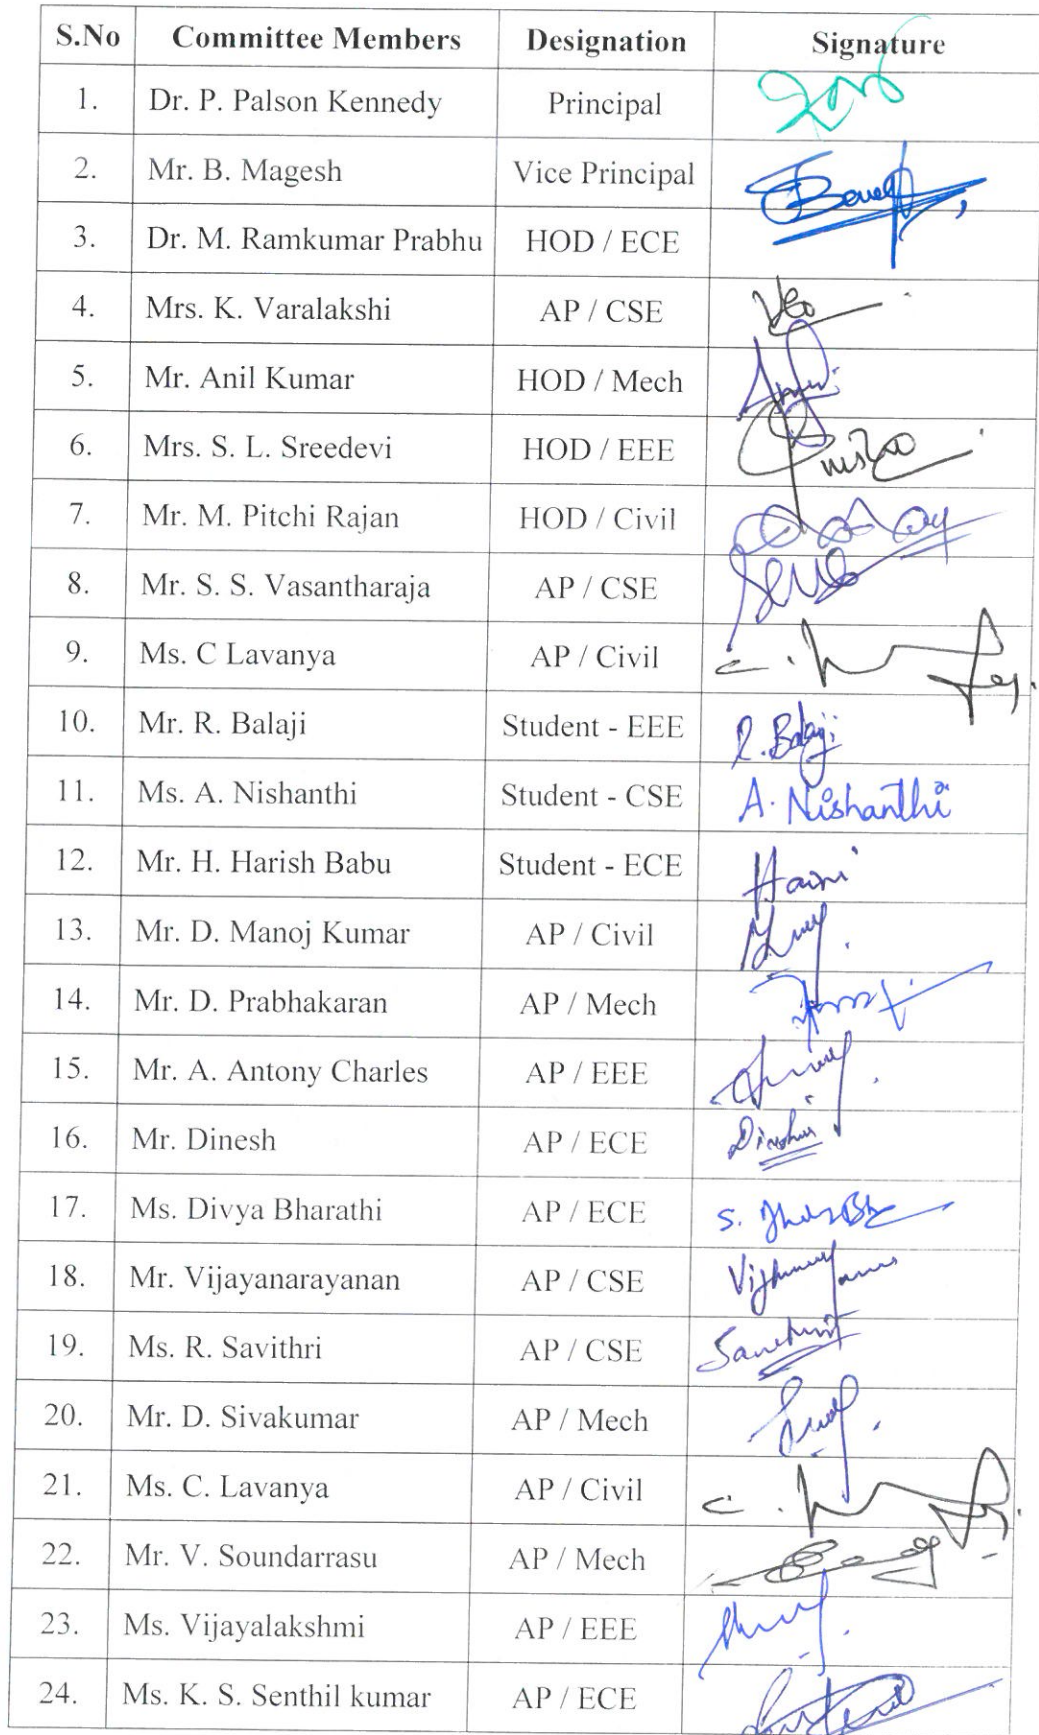 S.No Committee Members Designation Signature
1. Dr. P. Palson Kennedy Principal
2. Mr. B. Magesh Vice Principal
3. Dr. M. Ramkumar Prabhu HOD / ECE
4. Mrs. K. Varalakshi AP / CSE
5. Mr. Anil Kumar HOD / Mech
6. Mrs. S. L. Sreedevi HOD / EEE
7. Mr. M. Pitchi Rajan HOD / Civil
8. Mr. S. S. Vasantharaja AP / CSE
9. Ms. C Lavanya AP / Civil
10. Mr. R. Balaji Student - EEE R. Balaji
11. Ms. A. Nishanthi Student - CSE A. Nishanthi
12. Mr. H. Harish Babu Student - ECE
13. Mr. D. Manoj Kumar AP / Civil
14. Mr. D. Prabhakaran AP / Mech
15. Mr. A. Antony Charles AP / EEE
16. Mr. Dinesh AP / ECE
17. Ms. Divya Bharathi AP / ECE
18. Mr. Vijayanarayanan AP / CSE
19. Ms. R. Savithri AP / CSE
20. Mr. D. Sivakumar AP / Mech
21. Ms. C. Lavanya AP / Civil
22. Mr. V. Soundarrasu AP / Mech
23. Ms. Vijayalakshmi AP / EEE
24. Ms. K. S. Senthil kumar AP / ECE